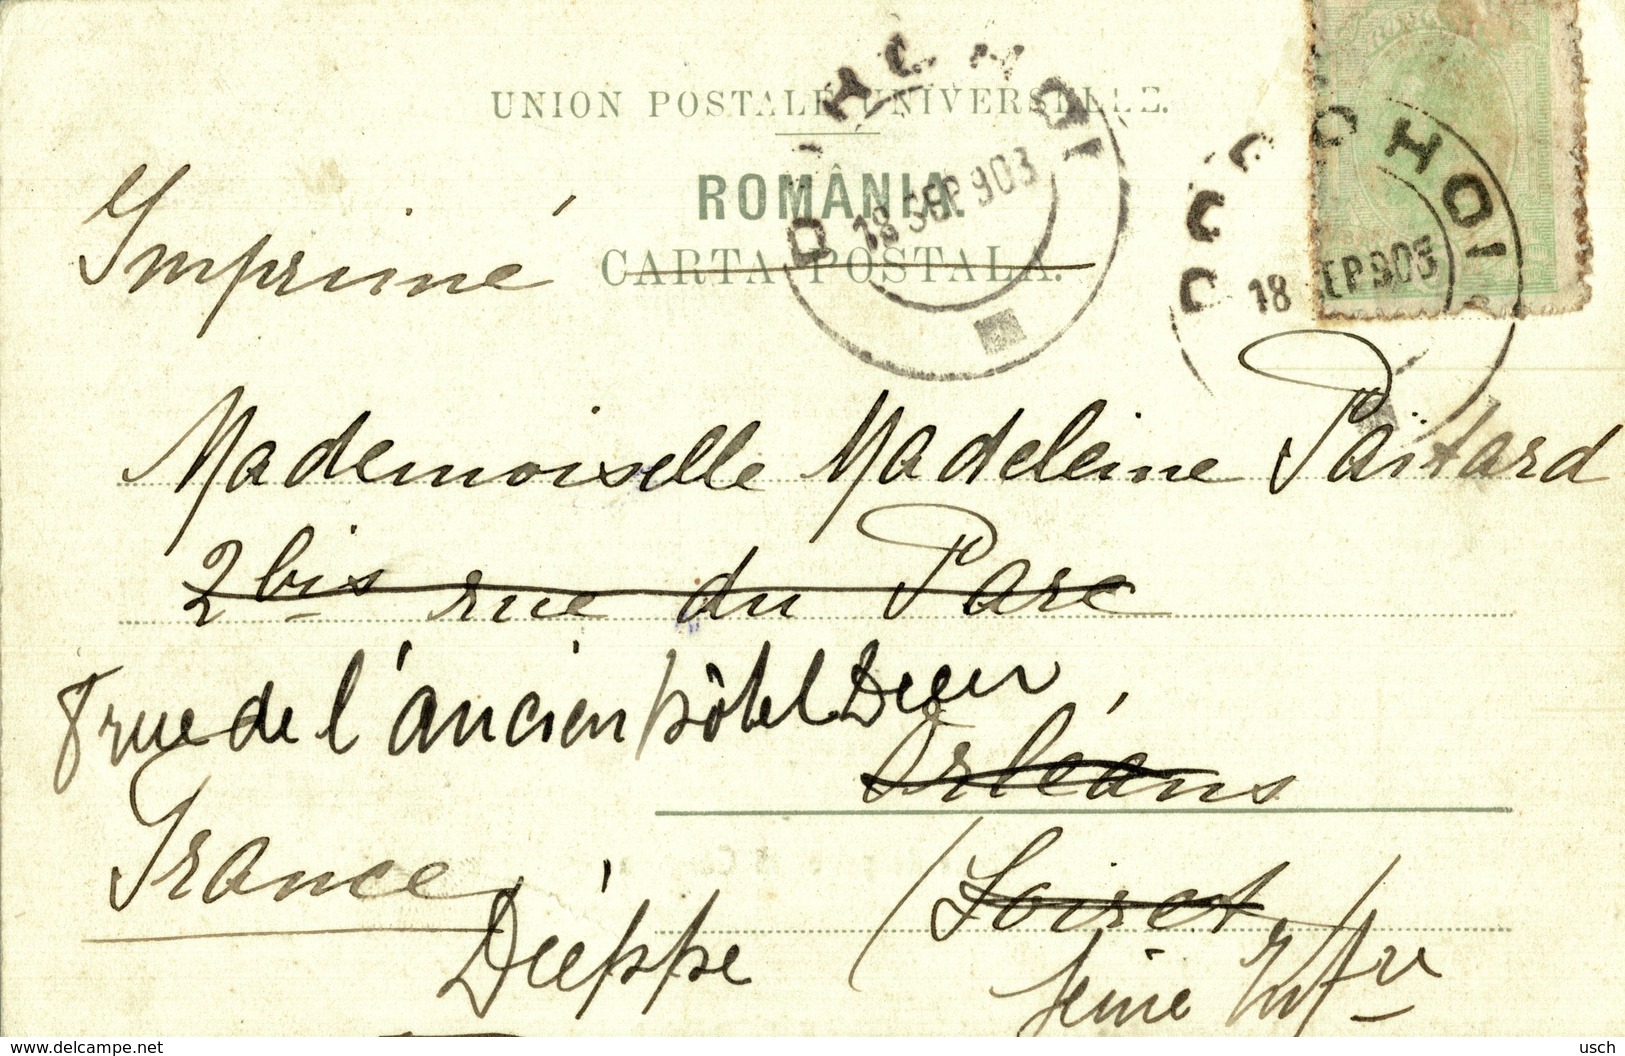 UNION POSTALE UNIVERSELLE.
ROMÂNIA.
CARTA POSTALA.
DOROHOI
18 SEP 903
DOROHOI
18 SEP 903
Imprimé
Mademoiselle Madeleine Païtard
2 bis rue du Parc
rue de l'ancien hôtel Dieu
Orléans
France
(Loiret)
Dieppe
Seine Infre
www.delcampe.net
usch